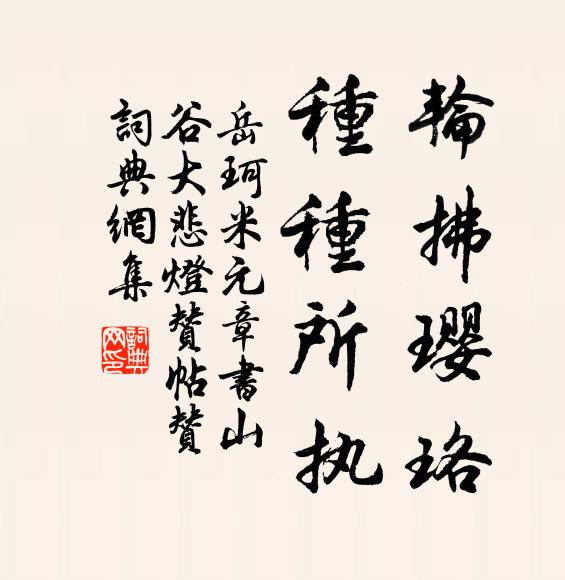 輪拂瓔珞
種種所执
岳珂米元章書山
谷大悲燈賛帖賛
詞典網集
詞典
网印